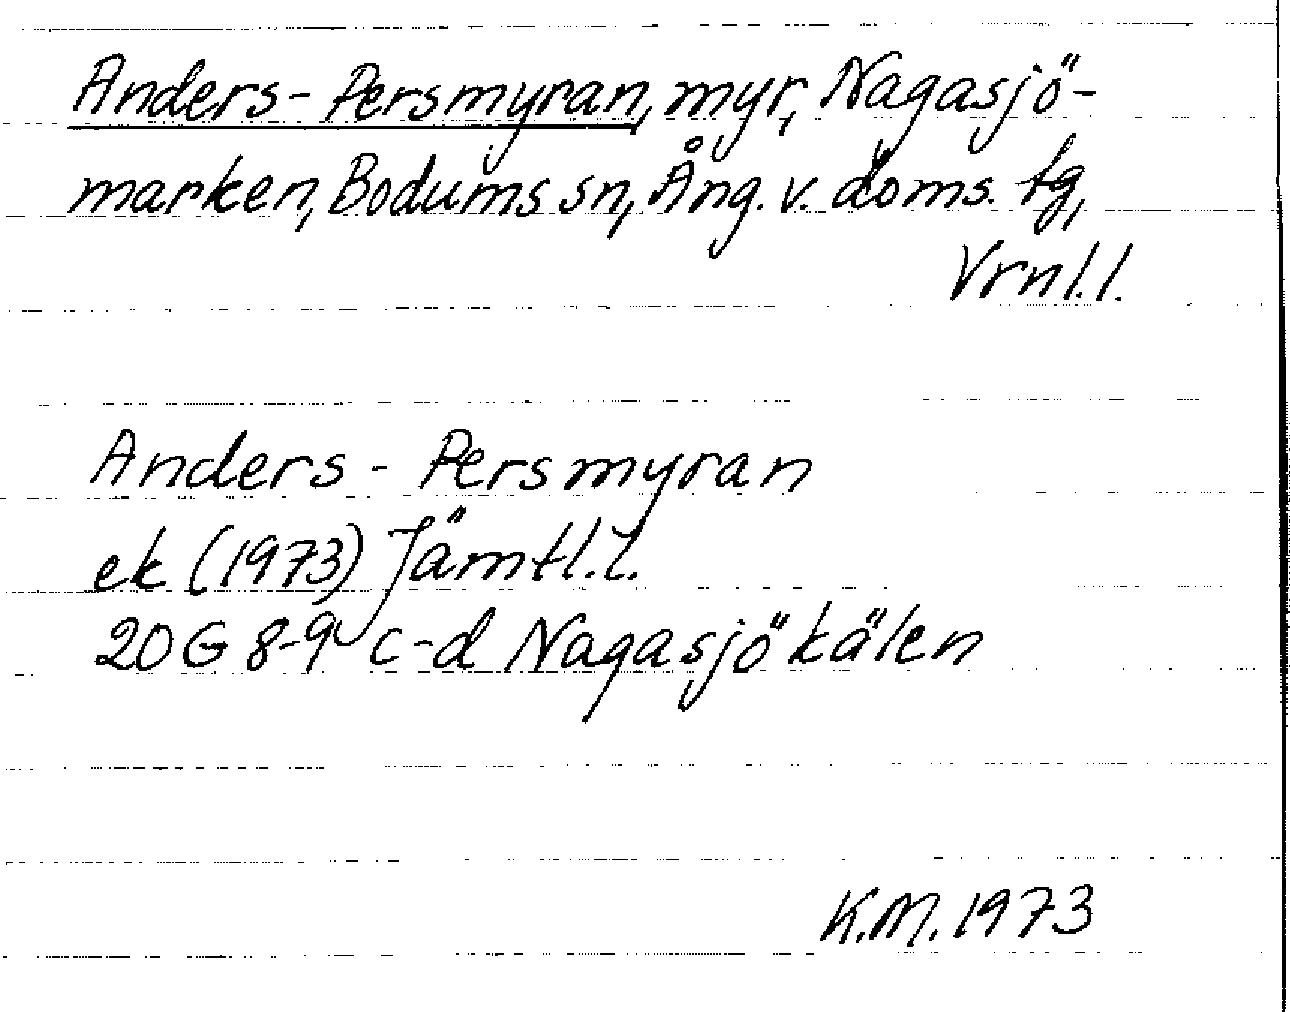 Anders-Persmyran, myr, Nagasjö-
marken, Bodums sn, Ång. v. doms. tg,
Vrnl. l.
Anders-Persmyran
ek (1973) Jämtl. l.
20 G 8-9 c-d Nagasjökälen
K.M. 1973